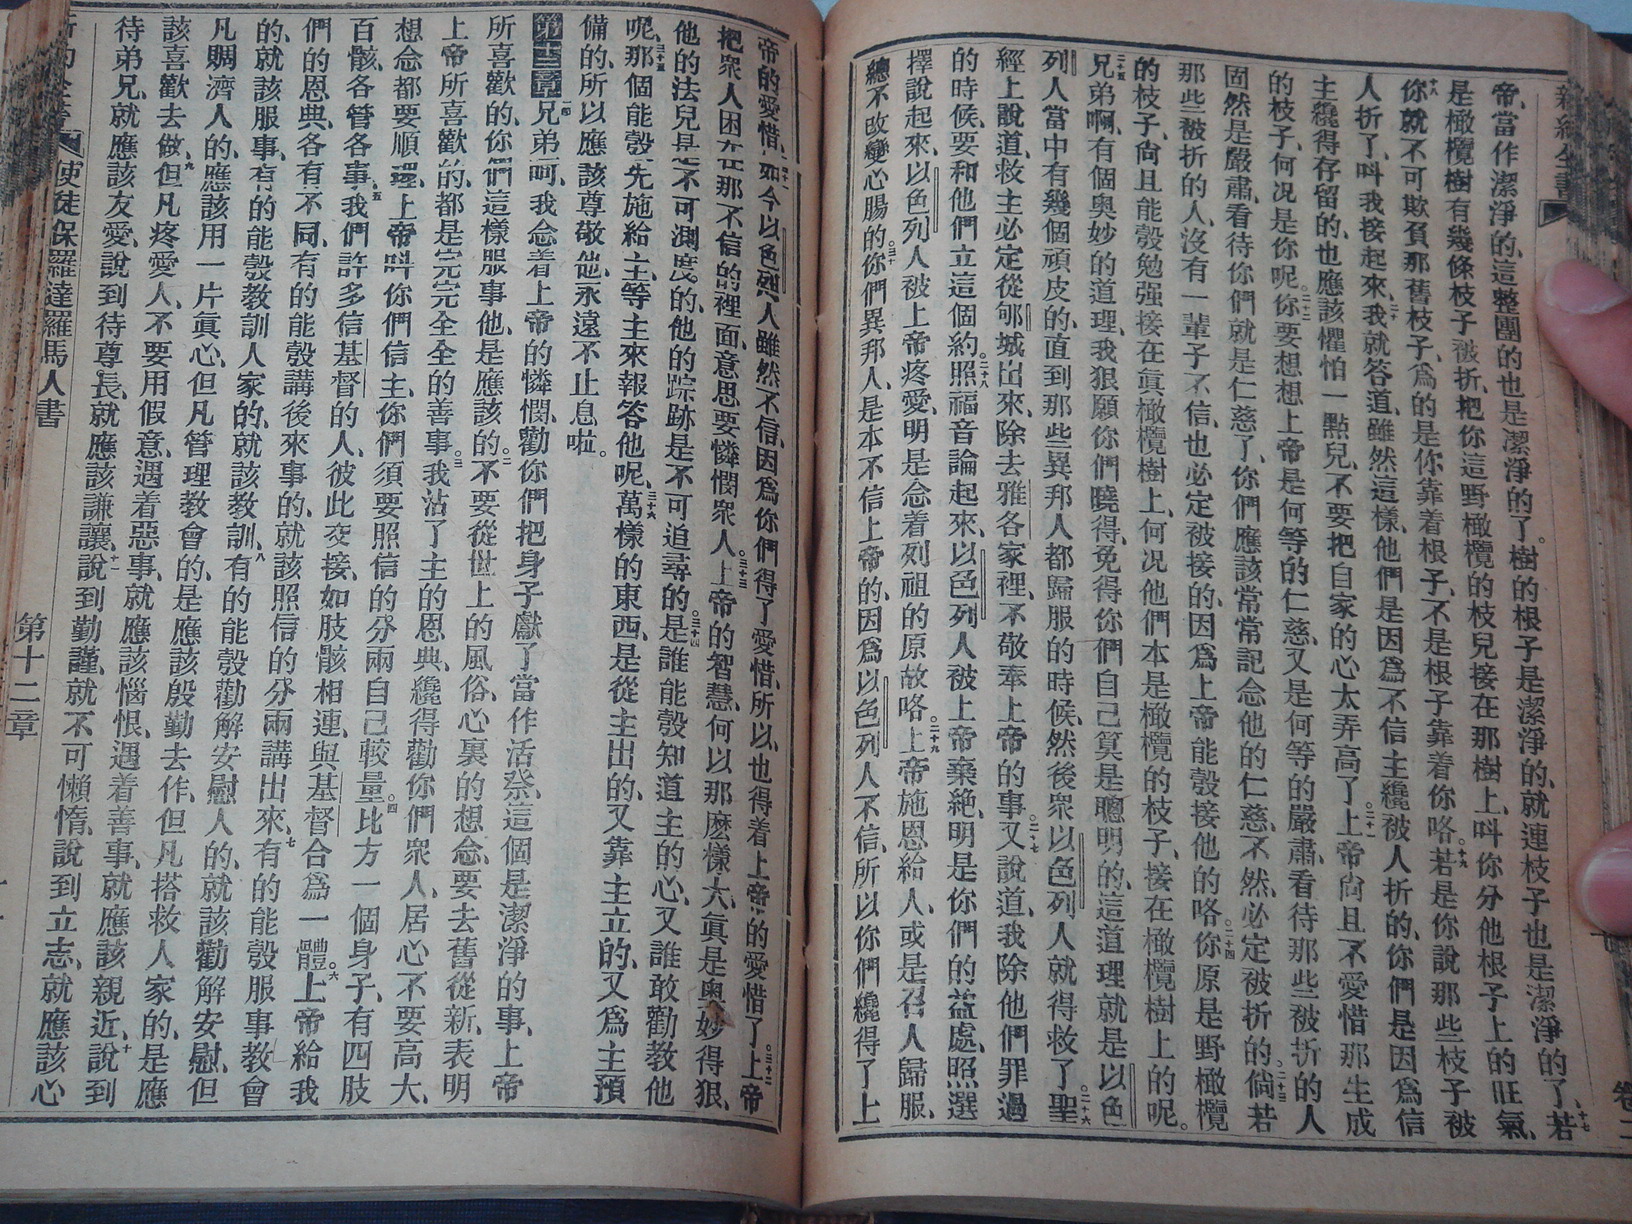 新約全書
卷二
帝、當作潔淨的、這整團的也是潔淨的了。樹的根子是潔淨的、就連枝子也是潔淨的了、十七若
是橄欖樹有幾條枝子被折、把你這野橄欖的枝兒接在那樹上、呌你分他根子上的旺氣、
十八你就不可欺負那舊枝子、爲的是你靠着根子、不是根子靠着你咯。十九若是你說那些枝子被
人折了、呌我接起來、二十我就答道、雖然這樣、他們是因爲不信主纔被人折的、你們是因爲信
主纔得存留的、也應該懼怕一點兒、不要把自家的心太弄高了。二十一上帝尙且不愛惜那生成
的枝子、何况是你呢。二十二你要想想上帝是何等的仁慈、又是何等的嚴肅、看待那些被折的人
固然是嚴肅、看待你們就是仁慈了、你們應該常常記念他的仁慈、不然、必定被折的、二十三倘若
那些被折的人、沒有一輩子不信、也必定被接的、因爲上帝能彀接他的咯。二十四你原是野橄欖
的枝子、尙且能彀勉强接在眞橄欖樹上、何况他們本是橄欖的枝子、接在橄欖樹上的呢。
二十五兄弟啊、有個奥妙的道理、我狠願你們曉得、免得你們自己算是聰明的、這道理就是以色
列人當中有幾個頑皮的、直到那些異邦人都歸服的時候、然後衆以色列人就得救了。二十六聖
經上說道、救主必定從郇城出來、除去雅各家裡、不敬奉上帝的事、二十七又說道、我除他們罪過
的時候、要和他們立這個約。二十八照福音論起來、以色列人被上帝棄絶、明是你們的益處、照選
擇說起來、以色列人被上帝疼愛、明是念着列祖的原故咯。二十九上帝施恩給人、或是召人歸服、
總不改變心腸的。三十你們異邦人、是本不信上帝的、因爲以色列人不信、所以你們纔得了上
帝的愛惜、三十一如今以色烈人雖然不信、因爲你們得了愛惜、所以也得着上帝的愛惜了。三十二上帝
把衆人困在那不信的裡面、意思要憐憫衆人。三十三上帝的智慧、何以那麽樣大、眞是奥妙得狠、
他的法兒是不可測度的、他的踪跡是不可追尋的。三十四是誰能彀知道主的心、又誰敢勸教他
呢、三十五那個能彀先施給主、等主來報答他呢、三十六萬樣的東西、是從主出的、又靠主立的、又爲主預
備的、所以應該尊敬他、永遠不止息啦。
第十二章一兄弟呵、我念着上帝的憐憫、勸你們把身子獻了當作活祭、這個是潔淨的事、上帝
所喜歡的、你們這樣服事他、是應該的。二不要從世上的風俗、心裏的想念、要去舊從新、表明
上帝所喜歡的、都是完完全全的善事。三我沾了主的恩典、纔得勸你們衆人、居心不要高大、
想念都要順理、上帝呌你們信主、你們須要照信的分兩自己較量。四比方一個身子、有四肢
百骸、各管各事、五我們許多信基督的人、彼此交接、如肢骸相連、與基督合爲一體。六上帝給我
們的恩典、各有不同、有的能彀講後來事的、就該照信的分兩講出來、七有的能彀服事教會
的、就該服事、有的能彀教訓人家的、就該教訓、八有的能彀勸解安慰人的、就該勸解安慰、但
凡賙濟人的、應該用一片眞心、但凡管理教會的、是應該殷勤去作、但凡搭救人家的、是應
該喜歡去做、九但凡疼愛人、不要用假意、遇着惡事、就應該惱恨、遇着善事、就應該親近、十說到
待弟兄、就應該友愛、說到待尊長、就應該謙讓、十一說到勤謹、就不可懶惰、說到立志、就應該心
使徒保羅達羅馬人書
第十二章